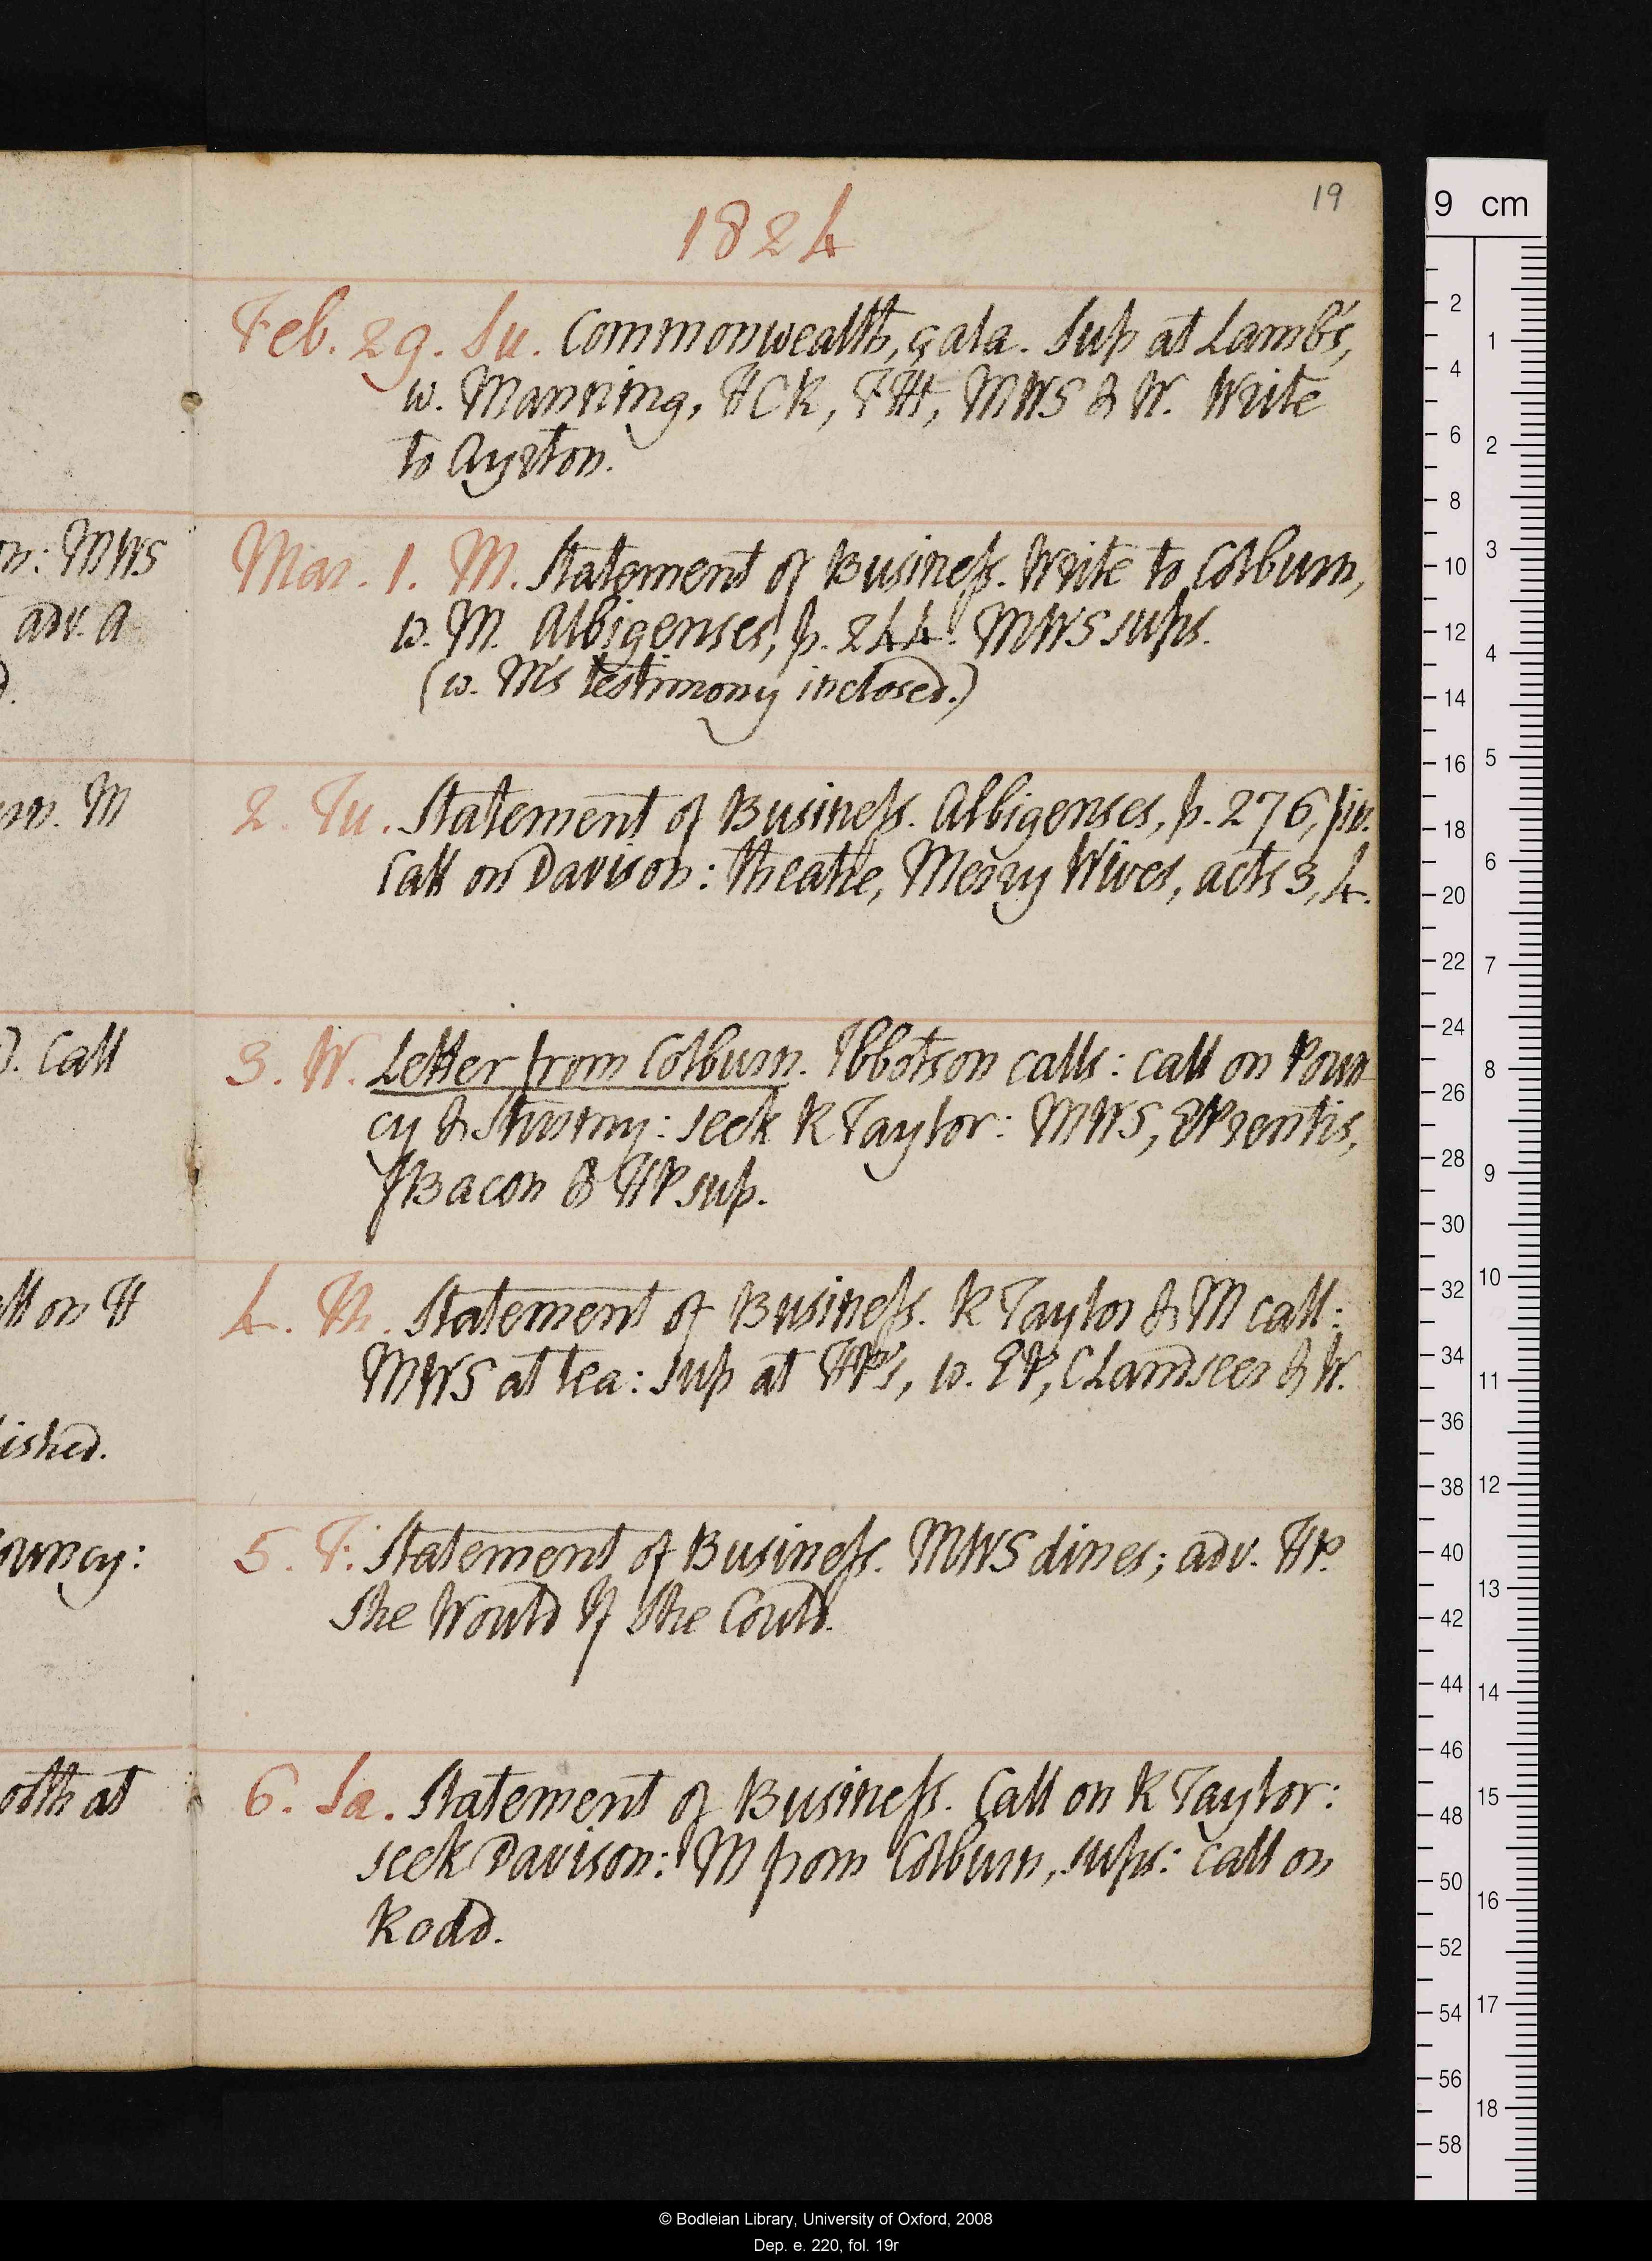 19
1824
Feb. 29. Su. Commonwealth, çala. Sup at Lamb's,
w. Manning, HCR, FH, MWS & W. Write
to Ayrton.
Mar. 1. M. Statement of Busineſs. Write to Colburn,
w. M. Albigenses, p. 244. MWS sups.
(w. M's testimony inclosed.)
2. Tu. Statement of Busineſs. Albigenses, p. 276, fin.
Call on Davison: theatre, Merry Wives, acts 3, 4.
3. W. Letter from Colburn. Ibbotson calls: call on Poun
cy & Shurmy: seek R Taylor: MWS, E Prentis,
J Bacon & HP sup.
4. Th. Statement of Busineſs. R Taylor & M call:
MWS at tea: sup at HP's, w. EP, C Landseer & W.
5. F. Statement of Busineſs. MWS dines; adv. HP.
She Would If She Could.
6. Sa. Statement of Busineſs. Call on R Taylor:
seek Davison: M from Colburn, sups: call on
Rodd.
n: MWS
adv. A
M
). Call
ll on H
ished.
ouncy:
oth at
9 cm
2
4
6
8
10
12
14
16
18
20
22
24
26
28
30
32
34
36
38
40
42
44
46
48
50
52
54
56
58
1
2
3
4
5
6
7
8
9
10
11
12
13
14
15
16
17
18
© Bodleian Library, University of Oxford, 2008
Dep. e. 220, fol. 19r